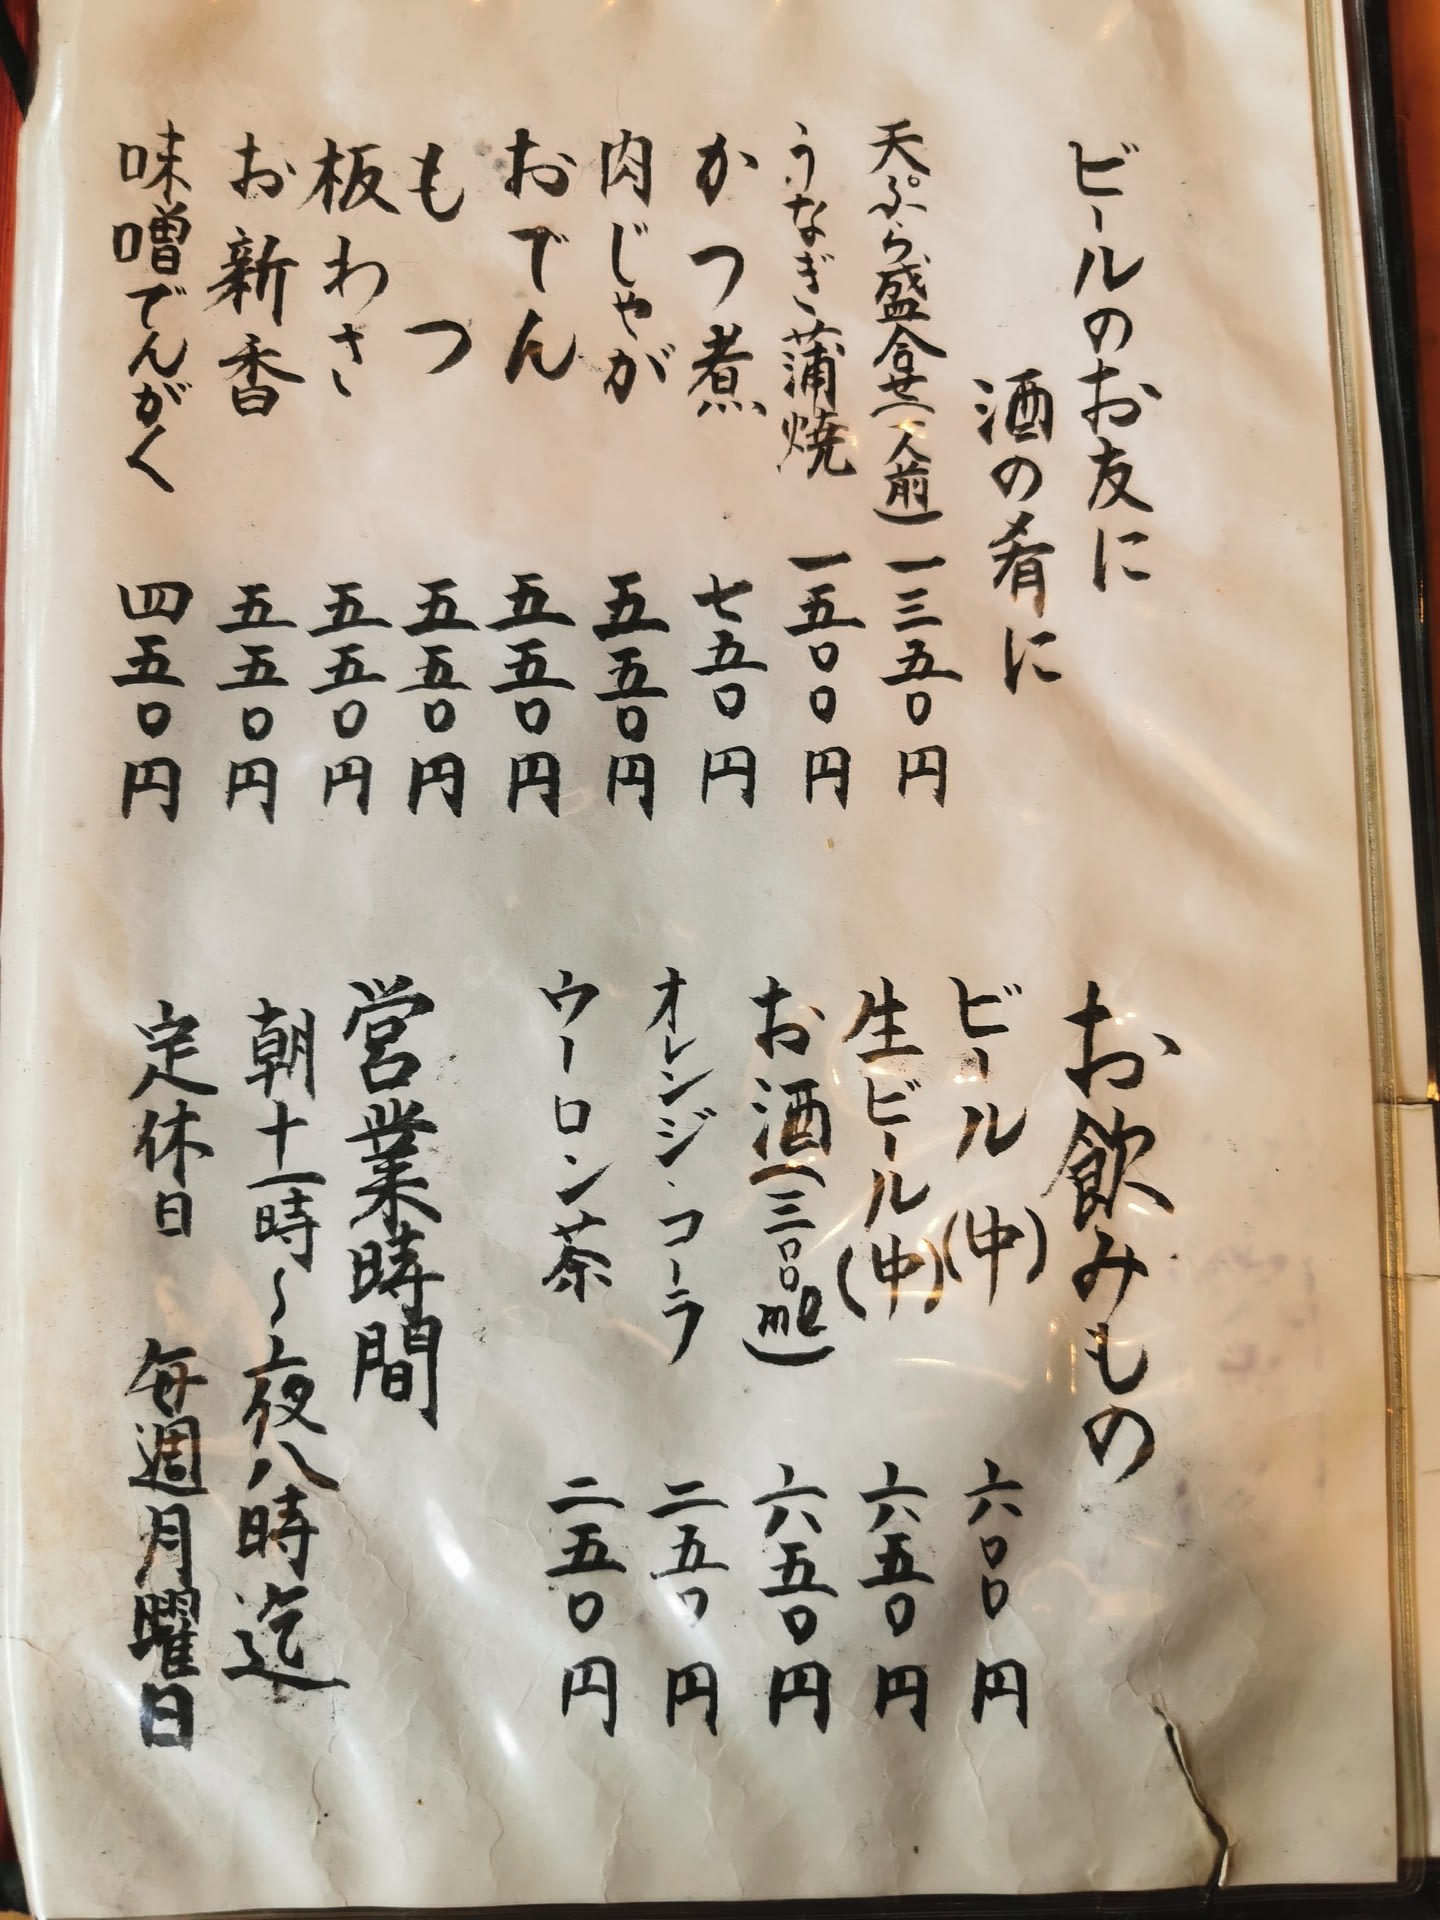 ビールのお友に
酒の肴に
天ぷら盛合せ(一人前)一三五〇円
うなぎ蒲焼 一五〇〇円
かつ煮 七五〇円
肉じゃが 五五〇円
おでん 五五〇円
もつ 五五〇円
板わさ 五五〇円
お新香 五五〇円
味噌でんがく 四五〇円
お飲みもの
ビール(中) 六〇〇円
生ビール(中) 六五〇円
お酒(三〇〇ml) 六五〇円
オレンジ・コーラ 二五〇円
ウーロン茶 二五〇円
営業時間
朝十一時~夜八時迄
定休日 毎週月曜日